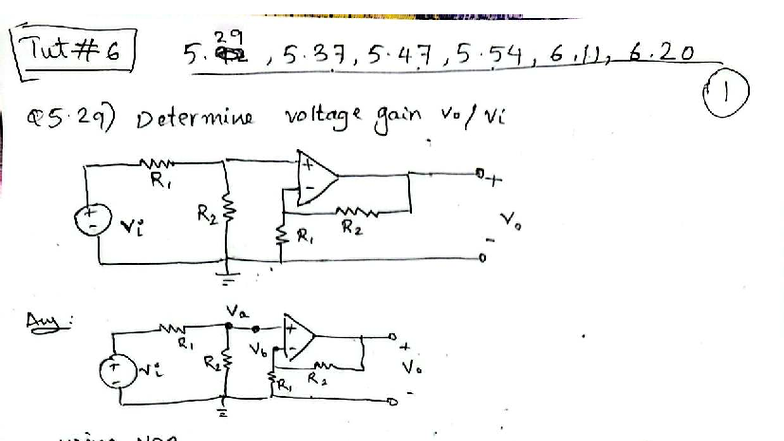 Tut # 6
5.29, 5.37, 5.47, 5.54, 6.11, 6.20
1
Q5.29) Determine voltage gain Vo/Vi
R1
+
-
+
-
Vi
R2
R1
R2
+
-
Vo
Ans:
Va
R1
Vb
+
-
+
-
Vi
R2
R1
R2
+
Vo
-
using